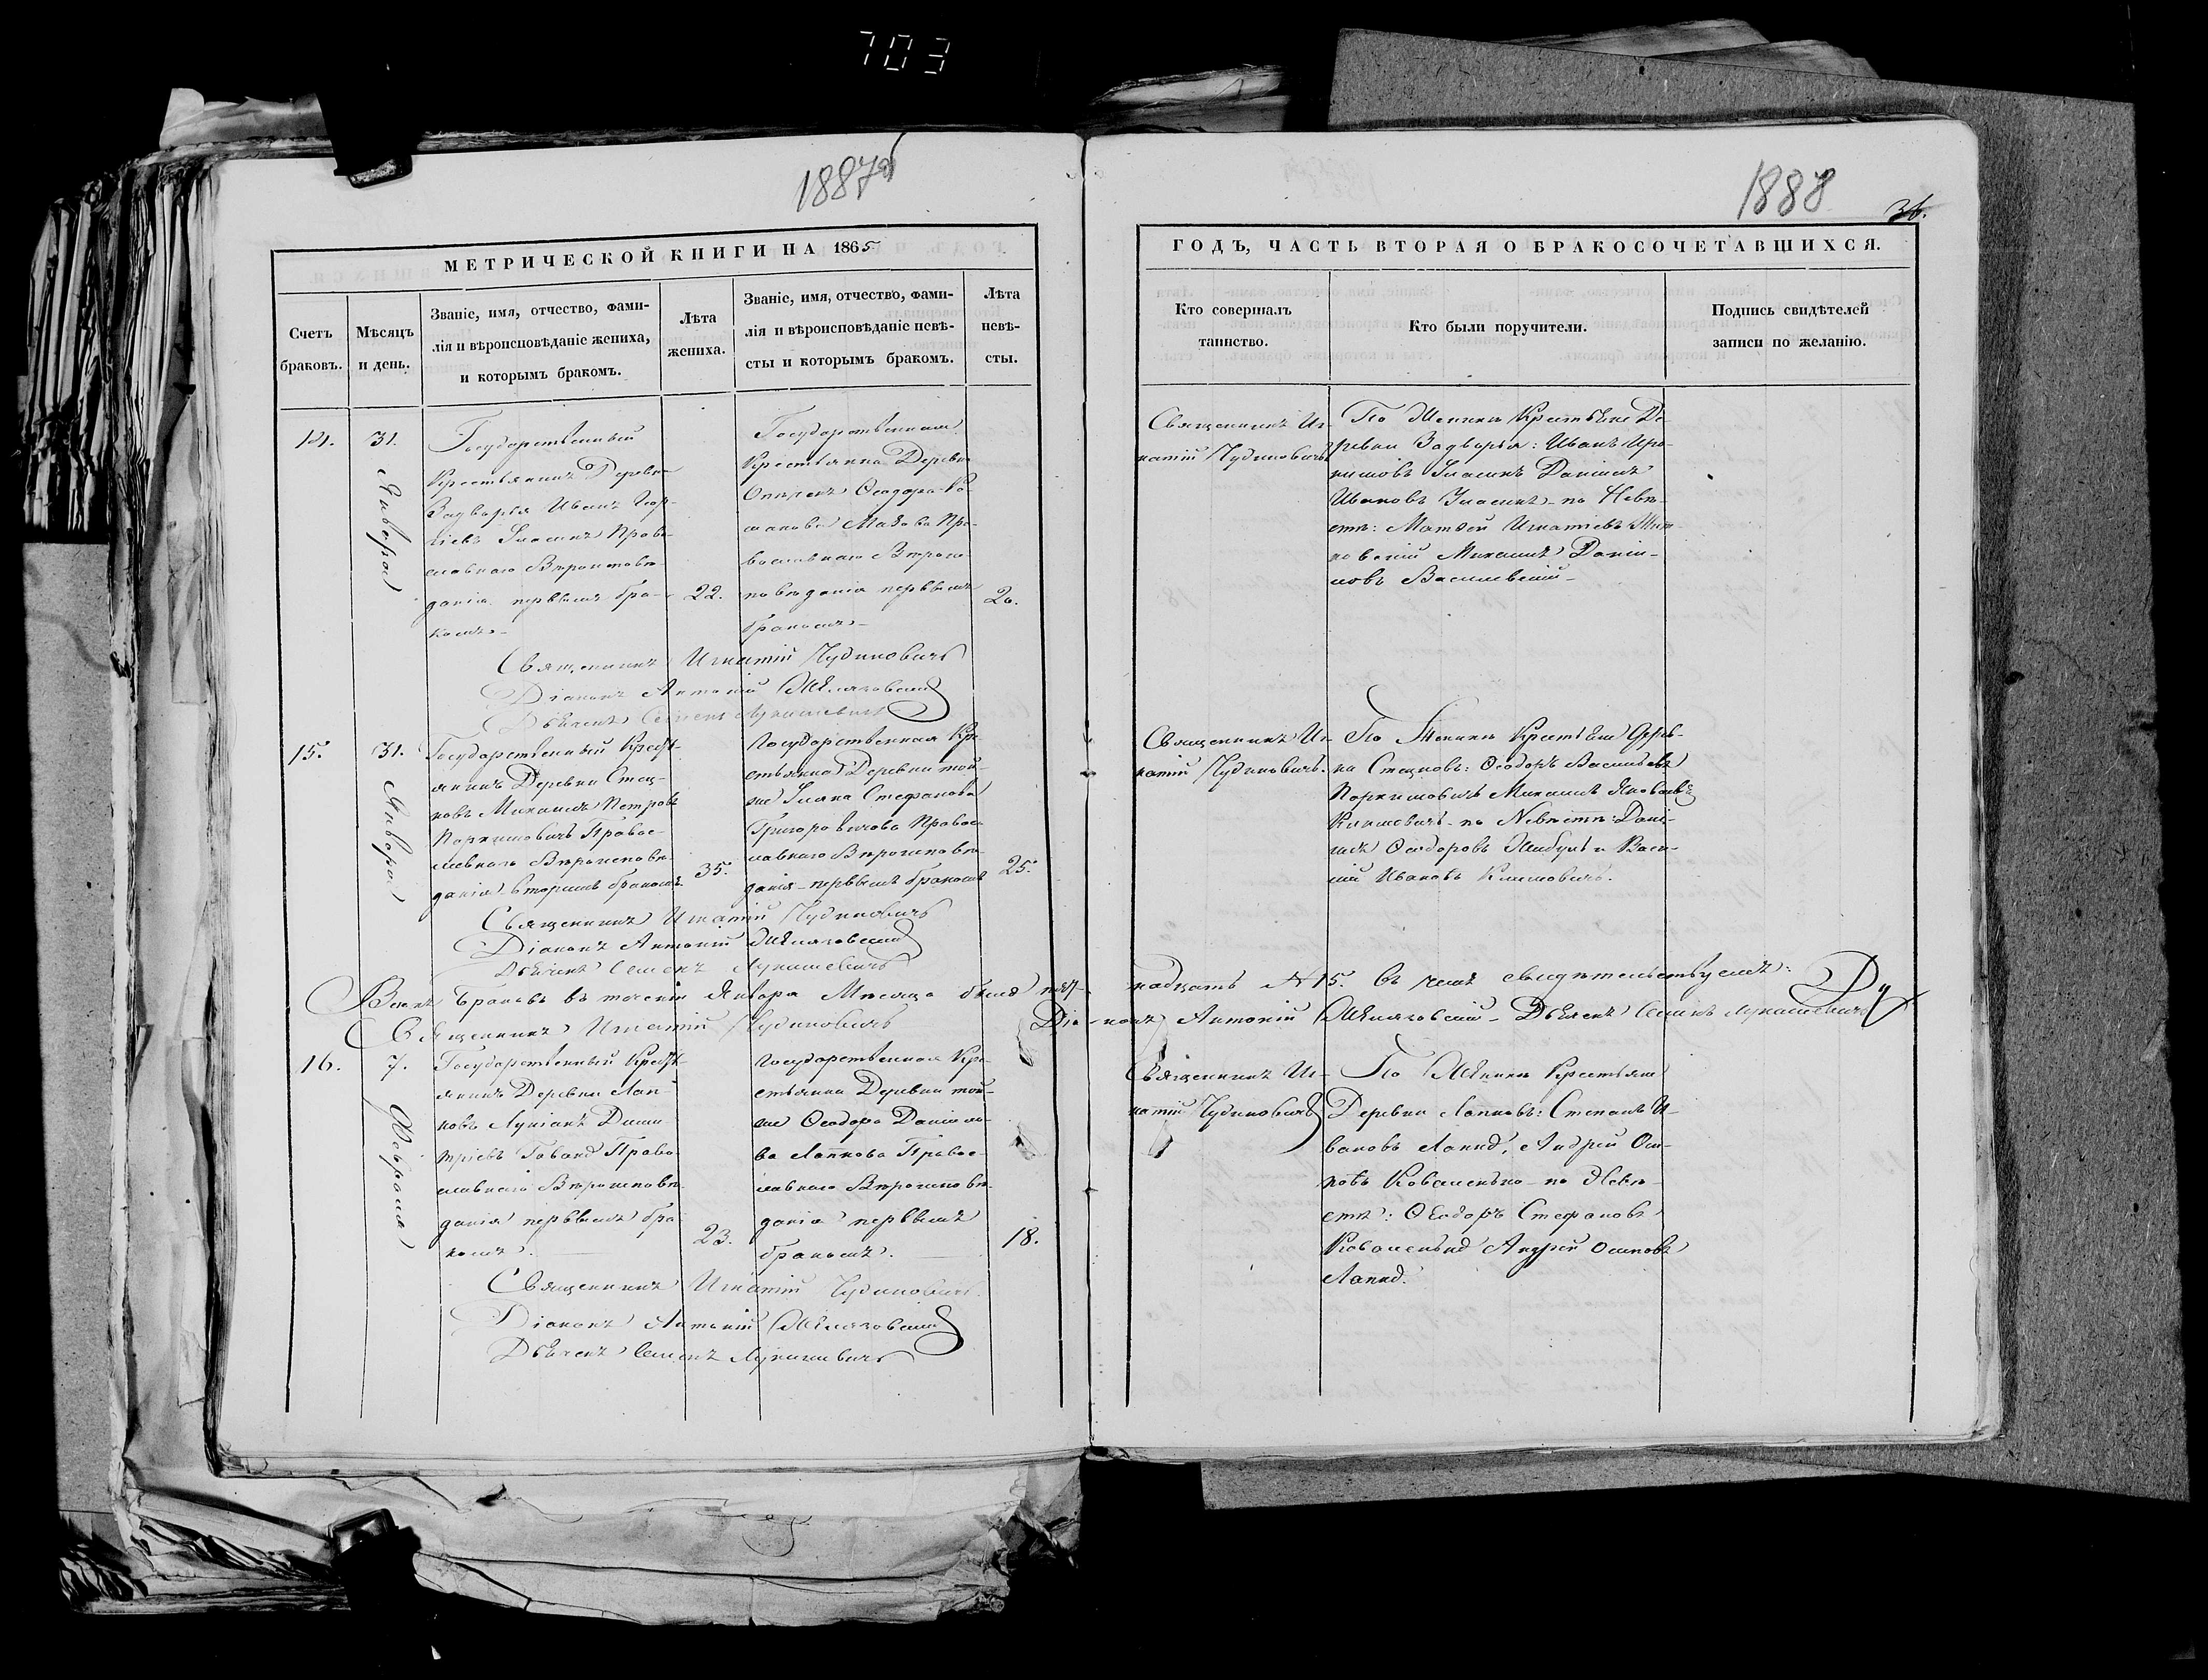 703
1887об
1888
36.
МЕТРИЧЕСКОЙ КНИГИ НА 1865
ГОДЪ, ЧАСТЬ ВТОРАЯ О БРАКОСОЧЕТАВШИХСЯ.
Счетъ
браковъ.
Мѣсяцъ
и день.
Званіе, имя, отчество, фами-
лія и вѣроисповѣданіе жениха,
и которымъ бракомъ.
Лѣта
жениха.
Званіе, имя, отчество, фами-
лія и вѣроисповѣданіе невѣ-
сты и которымъ бракомъ.
Лѣта
невѣ-
сты.
Кто совершалъ
таинство.
Кто были поручители.
Подпись свидѣтелей
записи по желанію.
14.
31.
Января
Государственный
Крестьянинъ Деревни
Задворья Иванъ
Право-
славнаго Вѣроисповѣ-
данія первымъ бра-
комъ
22.
Государственная
Крестьянка Деревни
Ѳеодора Ро-
манова Пра-
вославнаго Вѣроис-
повѣданія первымъ
бракомъ
20.
Священникъ Иг-
натій Чудиновичъ
По Женихѣ Крестьяне Де-
ревни Задворья: Иванъ
Даніилъ
Ивановъ по Невѣ-
стѣ: Матѳей Игнатіевъ
Михаилъ Даніи-
ловъ Василевскій
Священникъ Игнатій Чудиновичъ
Діаконъ Антоній
Дьячекъ Семенъ Лукашевичъ
15.
31.
Января
Государственный Крест-
янинъ Деревни Стец-
ковъ Михаилъ Петровъ
Православ-
наго Вѣроисповѣ-
данія вторымъ бракомъ
35.
Государственная Кре-
стьянка Деревни той-
же Стефанова
Григоровичова Правос-
лавнаго Вѣроисповѣ-
данія первымъ бракомъ
25.
Священникъ Иг-
натій Чудиновичъ.
По Женихѣ Крестьяне Дерев-
ни Стецковъ: Ѳеодоръ Васильевъ
Михаилъ Яковлевъ
Климовичъ по Невѣстѣ: Дані-
илъ Ѳеодоровъ и Васи-
лій Ивановъ Климовичъ.
Священникъ Игнатій Чудиновичъ
Діаконъ Антоній
Дьячекъ Семенъ Лукашевичъ
Всѣхъ браковъ въ теченіи Января Мѣсяца было пят-надцать №15. въ чемъ свидѣтельствуемъ:
Священникъ Игнатій Чудиновичъ Діа-конъ Антоній Дьячекъ Семенъ Лукашевичъ
16.
7.
Февраля
Государственный Крест-
янинъ Деревни Лап-
ковъ Лукіанъ Дими-
тріевъ Право-
славнаго Вѣроисповѣ-
данія первымъ бра-
комъ.
23.
Государственная Кре-
стьянка Деревни той-
же Ѳеодора Даніило-
ва Лапкова Правос-
лавнаго Вѣроисповѣ-
данія первымъ
бракомъ.
18.
Священникъ Иг-
натій Чудиновичъ
По Женихѣ Крестьяне
Деревни Лапковъ: Степанъ И-
вановъ Лапко, Андрей Оси-
повъ Коваленько по Невѣ-
стѣ: Ѳеодоръ Стефановъ
Коваленько Андрей Осиповъ
Лапко.
Священникъ Игнатій Чудиновичъ
Діаконъ Антоній
Дьячекъ Семенъ Лукашевичъ